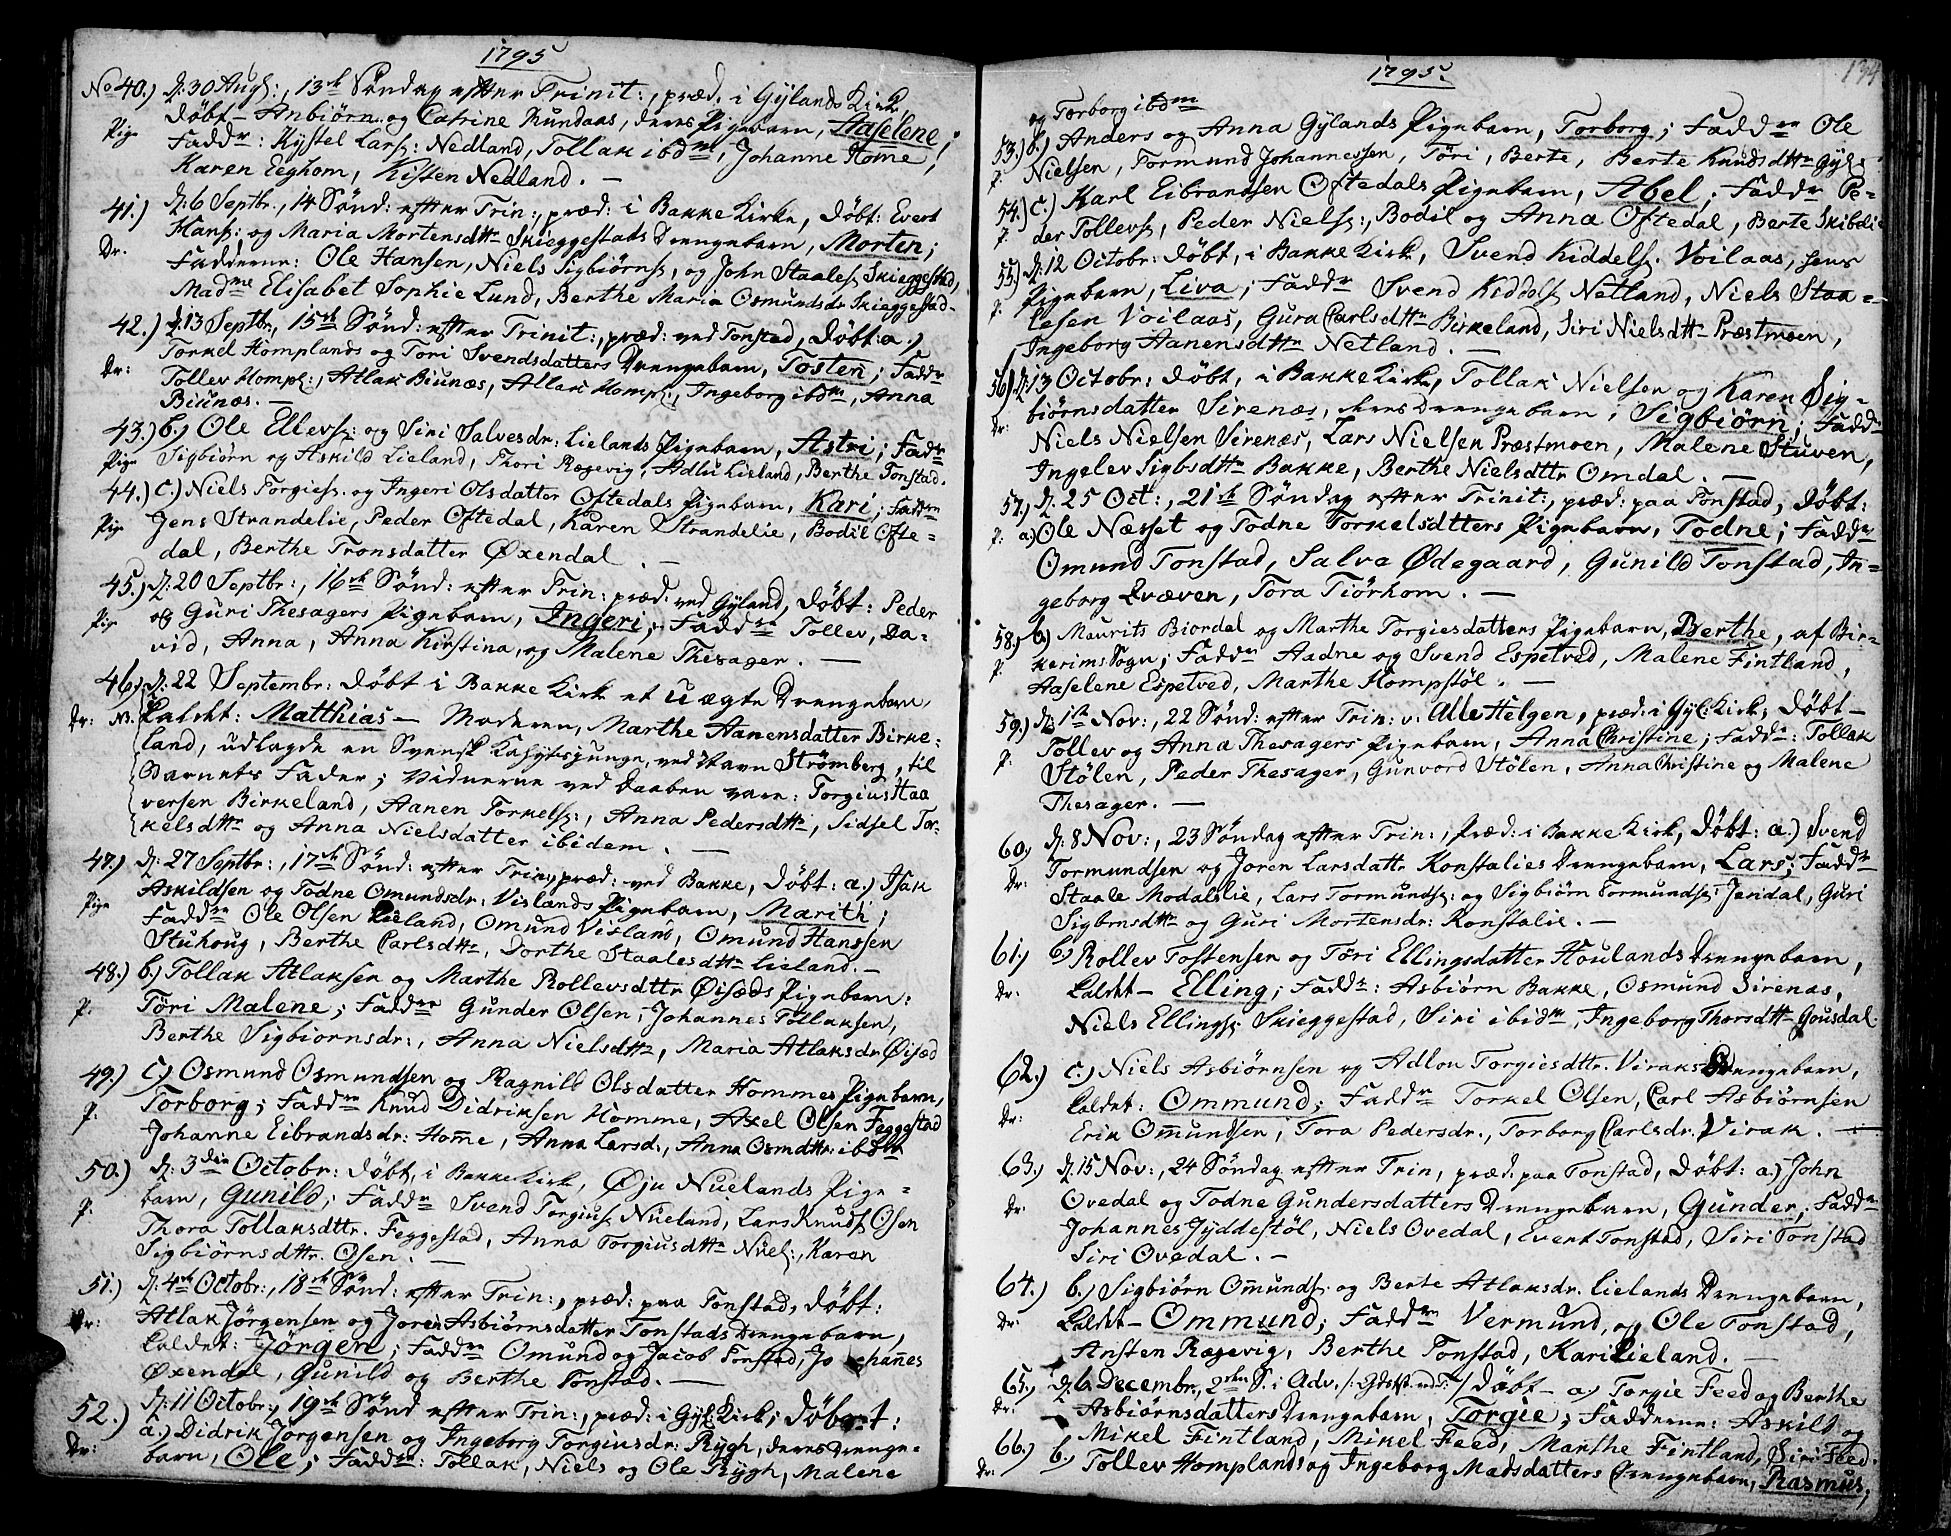 1795
No 40.) D: 30 Aug:, 13de Söndag efter Trinit:, præd. i Gylands Kirk
Döbt Anbiörn og Catrine Rundaas, deres Pigebarn, Aaselene;
Pige Fadd: Kystel Lars: Nedland, Tollak ibdm, Johanne Home,
Karen Eeghom, Kisten Nedland. —
41.) D: 6 Septbr., 14 Sønd: efter Trin:, præd: i Bakke Kirke, Døbt: Evert
Hans: og Maria Mortensdttr Skieggestads Drengebarn, Morten;
Dr. Fadderne: Ole Hansen, Niels Sigbiörns, og John Staales Skieggestad,
Madme Elisabet Sophie Lund, Berthe Maria Osmundsdr Skieggestad.
42.) D: 13 Septbr, 15de Sønd: efter Trinit:, præd: ved Tonstad, Døbt: a.)
Torkel Homplands og Tori Svendsdatters Drengebarn, Tosten; Fadd
Dr: Tollev Hompl:, Atlak Biunæs, Atlak Hompl:, Ingeborg ibdm, Anna
Biunæs. —
43.) b.) Ole Ellevs: og Siri Salvesdr: Lielands Pigebarn, Astri; Fadd
Pige Sigbiörn og Askild Lieland, Thori Rægevig, Adlu Lieland, Berthe Tonstad.
44.) C.) Niels Torgies. og Ingeri Olsdatter Oftedals Pigebarn, Kari; Fadd
Pige Jens Strandelie, Peder Oftedal, Karen Strandelie, Bodil Ofte=
dal, Berthe Tronsdatter Øxendal. —
45.) D: 20 Septbr:, 16de Sønd: efter Trin: præd: ved Gyland, Døbt: Peder
Pige og Guri Thesagers Pigebarn, Ingeri; Fadd Tollev, Da=
vid, Anna, Anna Kirstina, og Malene Thesager. —
46.) D: 22 Septembr: Døbt i Bakke Kirk et uægte Drengebarn,
Dr: NB. kaldet: Matthias — Moderen, Marthe Aanensdatter Birke=
land, udlagde en Svensk Kahytsjunge, ved Navn Strömberg, til
Barnets Fader; Vidnerne ved Daaben vare: Torgius Haa
versen Birkeland, Aanen Torkels:, Anna Pedersdttr, Sidsel Tor=
kelsdttr og Anna Nielsdatter ibidem. —
47.) D: 27 Septbr:, 17de Sønd: efter Trin, præd: ved Bakke, Døbt: a.) Isak
Askildsen og Todne Omundsdr: Vislands Pigebarn, Marith;
Pige Fadd Ole Olsen Lieland, Omund Visland, Omund Hanssen
Stuhoug, Berthe Carlsdttr, Dorthe Staalesdttr Lieland. —
48.) b.) Tollak Atlaksen og Marthe Rollevsdttr Øisæds Pigebarn:
p: Töri Malene; Fadd Gunder Olsen, Johannes Tollaksen,
Berthe Sigbiornsdr:, Anna Nielsdttr, Maria Atlaksdr Øisæd
49.) C.) Osmund Osmundsen og Ragnild Olsdatter Hommes Pigebarn,
p: Torborg; Fadd Knud Didriksen Homme, Axel Olsen Feggestad
Johanne Eibrandsdr: Home, Anna Larsd., Anna Osmdttr: ibdm
50.) D: 3den Octobr: Døbt, i Bakke Kirk, Øju Nuelands Pige=
p. barn, Gunild; Fadd Svend Torgius Nueland, Lars Knuds Osen
Thora Tollaksdttr. Feggestad, Anna Torgiusdttr Nuel:, Karen
Sigbiörnsdttr. Osen. —
51.) D: 4de Octobr:, 18de Sønd: efter Trin:, præd: paa Tonstad, Döbt:
Dr: Atlak Jörgensen og Joren Asbiörnsdatter Tonstads Drengebarn,
kaldet: Jörgen; Fadd Omund og Jacob Tonstad, Johannes
Øxendal, Gunild og Berthe Tonstad. —
52.) D: 11 Octobr:, 19de Sønd efter Trin:, præd: i Gyl: Kirk, Döbt:
a.) Didrik Jörgensen og Ingeborg Torgiusdr: Rygh, deres Drenge=
Dr: barn, Ole; Fadd: Tollak, Niels og Ole Rygh, Malene
1795
134
og Torborg ibdm
53.) b.) Anders og Anna Gylands Pigebarn, Torborg; Fadd Ole
p: Nielsen, Tormund Johannessen, Töri, Berte, Berte Knudsdttr Gyl:
54.) C.) Karl Eibrandsen Oftedals Pigebarn, Abel; Fadd Pe=
p. der Tollevs, Peder Niels:, Bodil og Anna Oftedal, Berte Skibelie
55.) D: 12 Octobr: Døbt, i Bakke Kirk, Svend Kiddels. Voilaas, hans
p. Pigebarn, Liva; Fadd Svend Kiddels Netland, Niels Staa=
lesen Voilaas, Gura Carlsdttr Birkeland, Siri Nielsdttr Præstmoen,
Ingeborg Aanensdttr Netland. —
56) D: 13 Octobr: Døbt, i Bakke Kirk, Tollak Nielsen og Karen Sig=
biörnsdatter Sirenæs, deres Drengebarn, Sigbiörn; Fadd
Dr: Niels Nielsen Sirenæs, Lars Nielsen Præstmoen, Malene Stuven,
Ingelev Sigbsdttr Bakke, Berthe Nielsdttr Omdal. —
57.) D: 25 Oct:, 21de Söndag efter Trinit:, præd: paa Tonstad, Döbt:
p: a.) Ole Næsset og Todne Torkelsdtters Pigebarn, Todne; Fadd
Omund Tonstad, Salve Ødegaard, Gunild Tonstad, In=
geborg Qvæven, Tora Tiörhom. —
58.) b.) Maurits Biordal og Marthe Torgiesdatters Pigebarn, Berthe, af Bir=
p: kerims Sogn; Fadd Aadne og Svend Espetved, Malene Fintland,
Aaselene Espetved, Marthe Hompstöl. —
59.) D: 1te Nov:, 22 Sönd: efter Trin: v: Alle Helgen, præd: i Gyl: Kirk, Döbt —
p: Tollev og Anna Thesagers Pigebarn, Anna Christine; Fadd: Tollak
Stölen, Peder Thesager, Gunvord Stölen, Anna Christine og Malene
Thesager. —
60.) D: 8 Nov:, 23 Söndag efter Trin:, Præd: i Bakke Kirk, Döbt: a.) Svend
Dr: Tormundsen og Joren Larsdattr Konstalies Drengebarn, Lars; Fadd
Staale Modalslie, Lars Tormunds: og Sigbiörn Tormunds: Jendal, Guri
Sigbrnsdttr og Guri Mortensdr: Konstalie. —
61.) b.) Rollev Tostensen og Töri Ellingsdatter Houlands Drengebarn,
Dr: kaldet — Elling; Fadd: Asbiörn Bakke, Osmund Sirenæs,
Niels Ellings: Skieggestad, Siri ibidm, Ingeborg Thorsdttr Gousdal.
62.) c.) Niels Asbiörnsen og Adlou Torgiesdttr. Viraks Drengebarn,
Dr: kaldet: Ommund; Fadd Torkel Olsen, Carl Asbiörnsen
Erik Omundsen, Tora Pedersdr., Torborg Carlsdr. Virak. —
63.) D: 15 Nov:, 24 Söndag efter Trin, præd: paa Tonstad, Döbt: a.) John
Dr: Ovedal og Todne Gundersdatters Drengebarn, Gunder; Fadd
Johannes Jyddestöl, Niels Ovedal, Evert Tonstad, Siri Tonstad
Siri Ovedal. —
64.) b.) Sigbiörn Omunds: og Berte Atlaksdr. Lielands Drengebarn,
Dr: kaldet — Ommund; Fadd Vermund, og Ole Tonstad,
Ansten Rægevig, Berthe Tonstad, Kari Lieland. —
65.) D: 6 Decembr, 2den S. i Adv. Döbt — a.) Torgie Feed og Berthe
Dr: Asbiörnsdatters Drengebarn, Torgie; Fadderne: Askild og
Mikel Fintland, Mikel Feed, Marthe Fintland, Siri Feed.
66.) b.) Tollev Homplands og Ingeborg Madsdatters Drengebarn, Rasmus;
Dr: